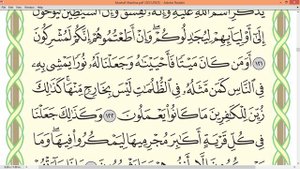 Mushaf Madina.pdf (SECURED) - Adobe Reader
يُذْكَرِ ٱسْمُ ٱللَّهِ عَلَيْهِ وَإِنَّهُۥ لَفِسْقٌ وَإِنَّ ٱلشَّيَٰطِينَ لَيُوحُونَ
إِلَىٰٓ أَوْلِيَآئِهِمْ لِيُجَٰدِلُوكُمْ وَإِنْ أَطَعْتُمُوهُمْ إِنَّكُمْ لَمُشْرِكُونَ
١٢١ أَوَمَن كَانَ مَيْتًا فَأَحْيَيْنَٰهُ وَجَعَلْنَا لَهُۥ نُورًا يَمْشِى بِهِۦ
فِى ٱلنَّاسِ كَمَن مَّثَلُهُۥ فِى ٱلظُّلُمَٰتِ لَيْسَ بِخَارِجٍ مِّنْهَا كَذَٰلِكَ
زُيِّنَ لِلْكَٰفِرِينَ مَا كَانُوا۟ يَعْمَلُونَ ١٢٢ وَكَذَٰلِكَ جَعَلْنَا
فِى كُلِّ قَرْيَةٍ أَكَٰبِرَ مُجْرِمِيهَا لِيَمْكُرُوا۟ فِيهَا وَمَا